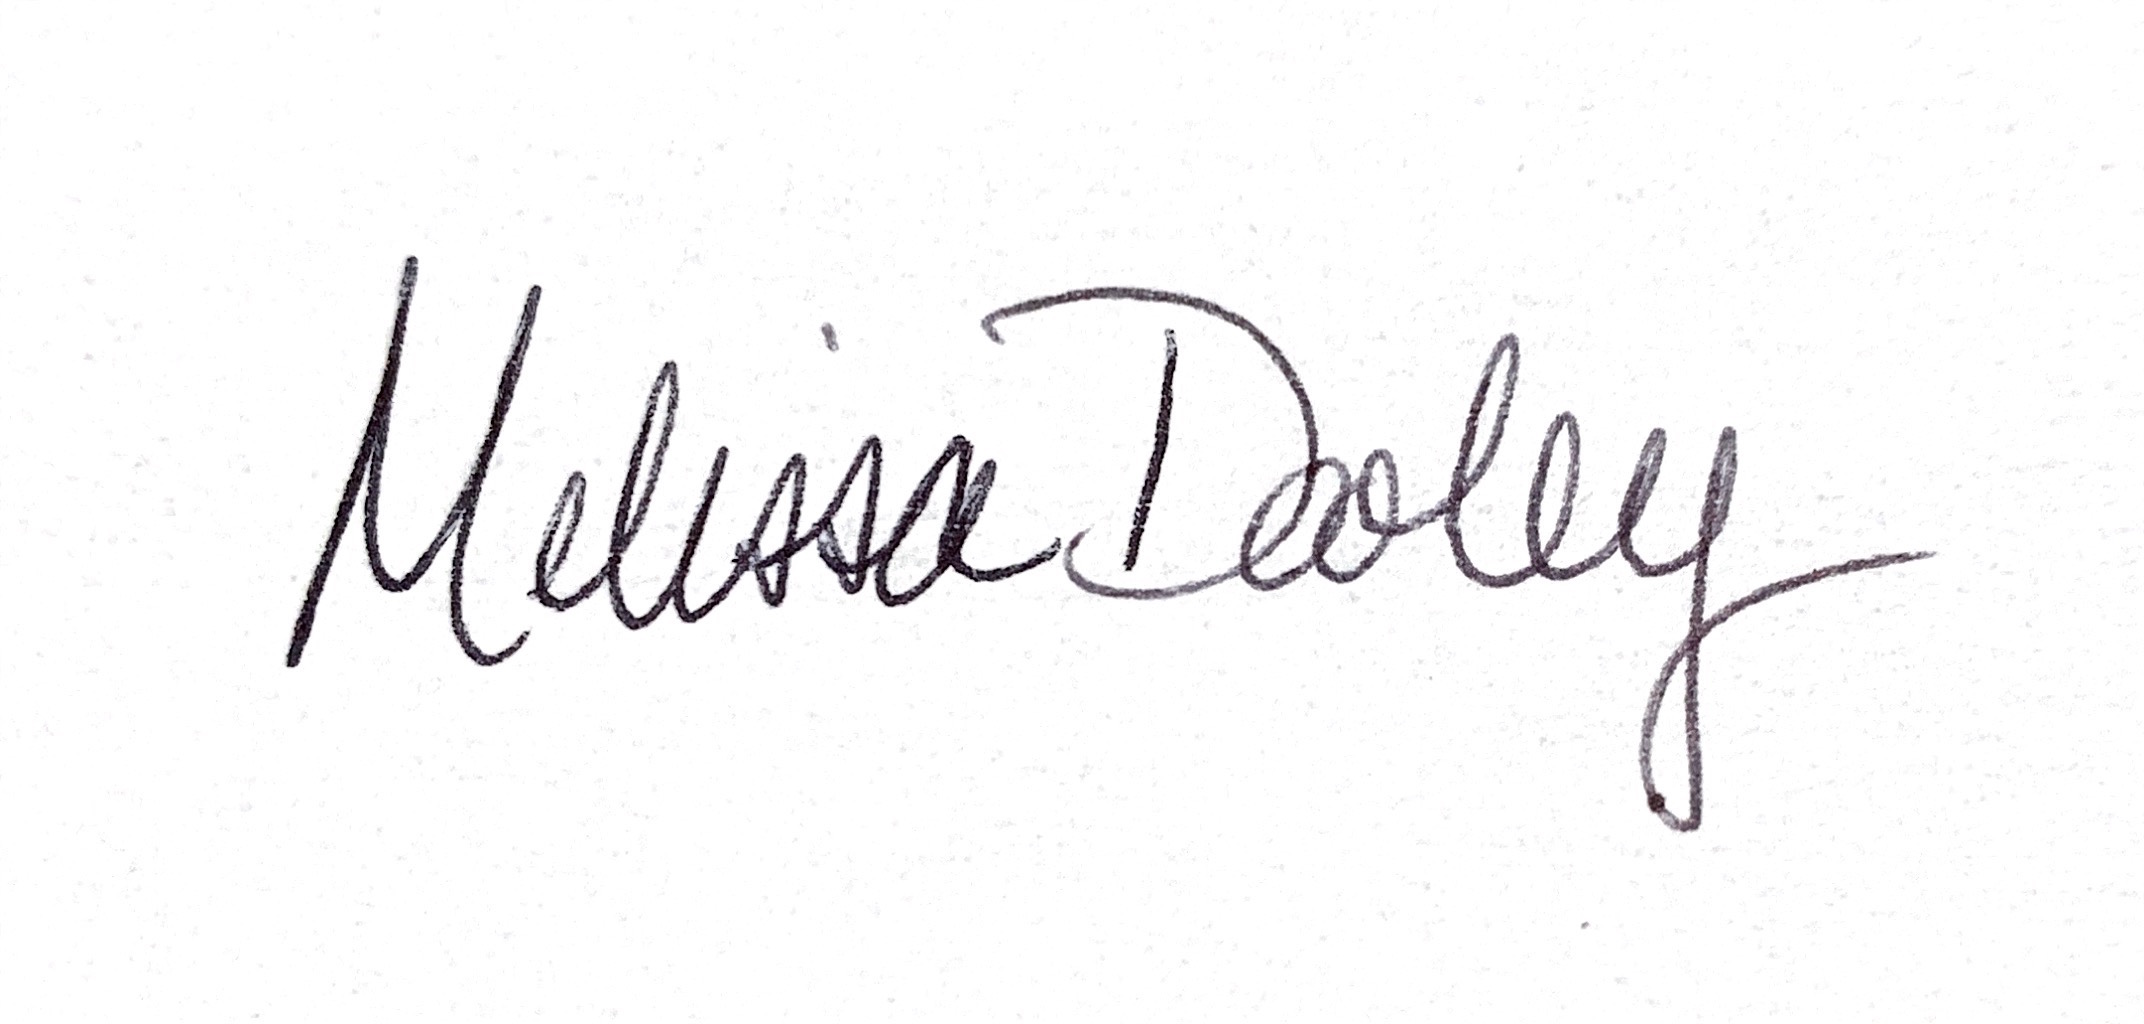 Melissa Dooley